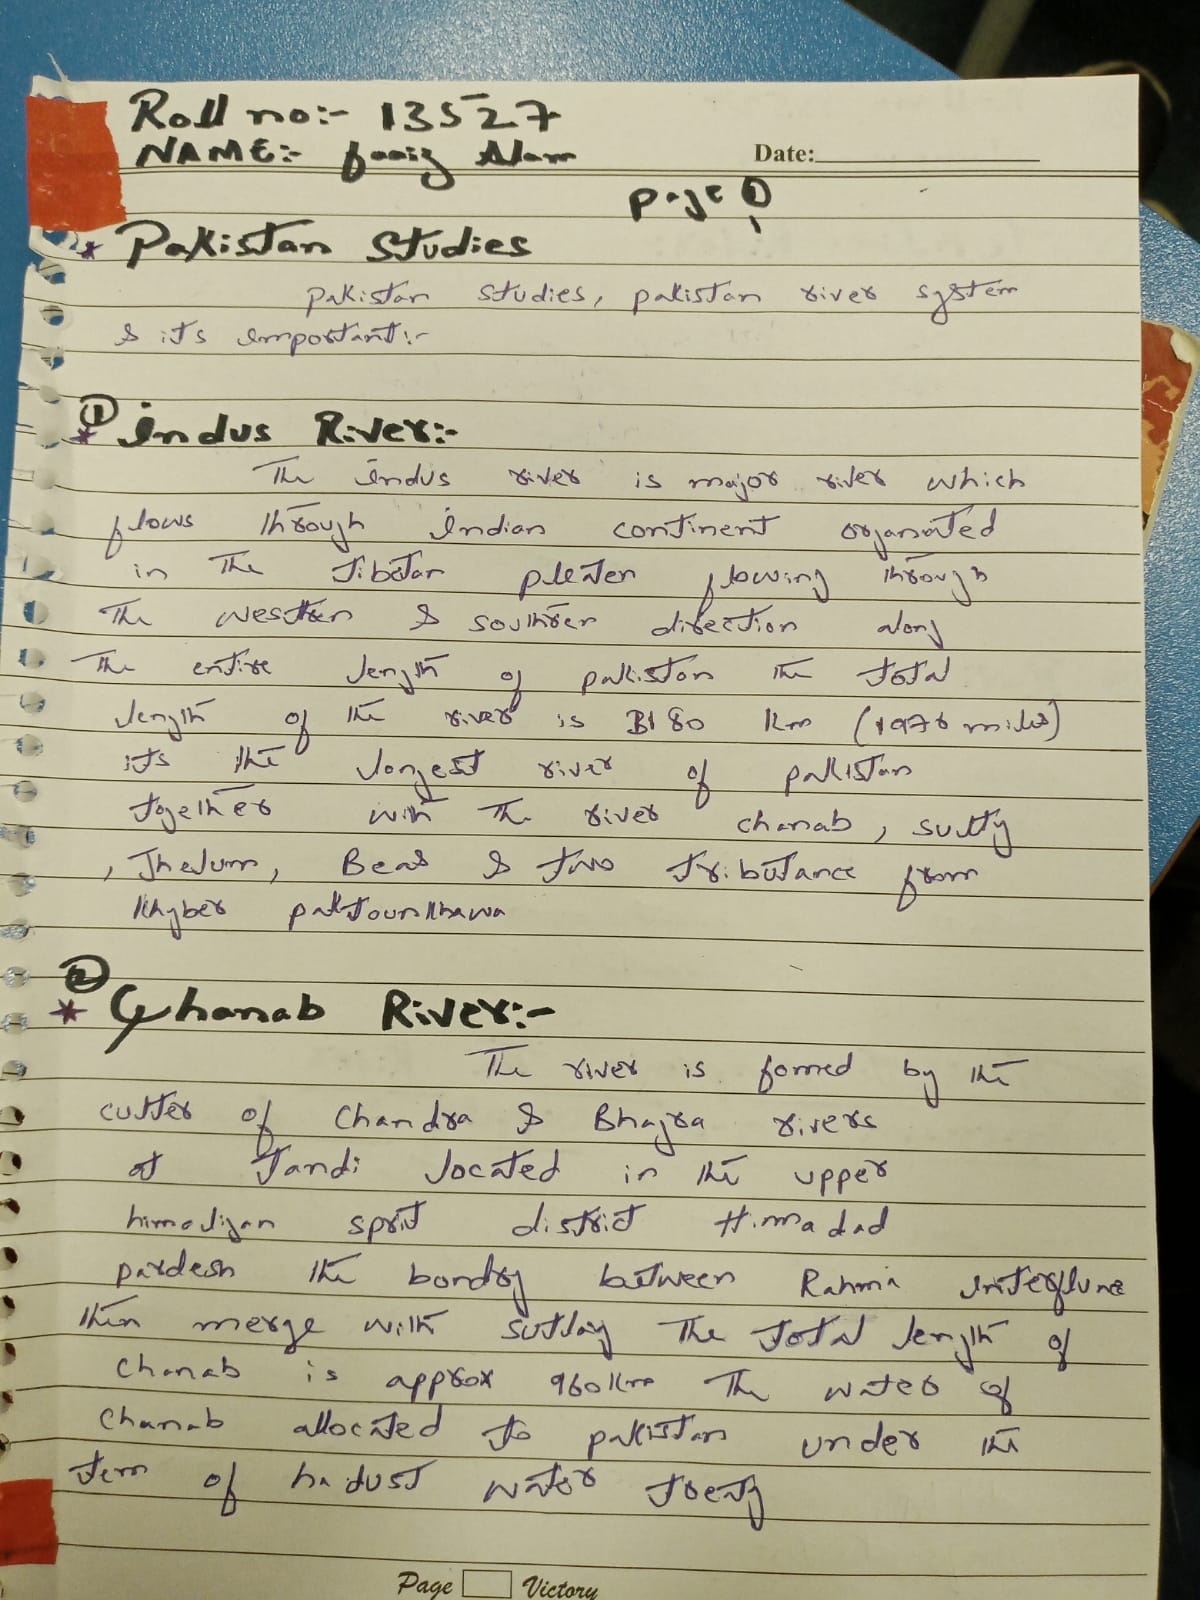 Roll no:- 13527
NAME:- faaiz Alam
Date:
page 1
* Pakistan Studies
pakistan studies, pakistan river system
& it's important:-
① * Indus River:-
The indus river is major river which
flows through indian continent organated
in The Tibetan pleaten flowing through
The westhren & southren direction along
The entire length of pakiston the total
length of the river is 3180 km (1976 miles)
its the longest river of pakistan
together with The river chanab, sulty
, Jhelum, Beas & two tributance from
Khyber paktounkhawa
② * Chanab River:-
The river is formed by the
cutter of Chandra & Bhagra rivers
at Tandi located in the upper
himaliyan sprit district Himadad
pardesh the bondry between Rahma interflune
then merge with sutlay The total length of
chanab is approx 960km The water of
chanab allocated to pakistan under the
term of water treaty
Page Victory